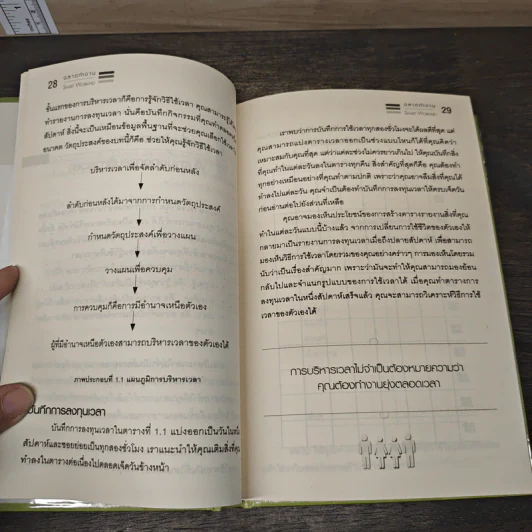 28
ฉลาดทำงาน
Smart Workbook
ขั้นแรกของการบริหารเวลาก็คือการรู้จักวิธีใช้เวลา คุณสามารถ
ทำรายงานการลงทุนเวลา นั่นคือบันทึกกิจกรรมที่คุณทำตลอด
สัปดาห์ สิ่งนี้จะเป็นเหมือนข้อมูลพื้นฐานที่จะช่วยคุณเลือกใช้เวลา
อนาคต วัตถุประสงค์ของบทนี้ก็คือ ช่วยให้คุณรู้จักวิธีใช้เวลา
บริหารเวลาเพื่อจัดลำดับก่อนหลัง
ลำดับก่อนหลังได้มาจากการกำหนดวัตถุประสงค์
กำหนดวัตถุประสงค์เพื่อวางแผน
วางแผนเพื่อควบคุม
การควบคุมก็คือการมีอำนาจเหนือตัวเอง
ผู้ที่มีอำนาจเหนือตัวเองสามารถบริหารเวลาของตัวเองได้
ภาพประกอบที่ 1.1 แผนภูมิการบริหารเวลา
บันทึกการลงทุนเวลา
บันทึกการลงทุนเวลาในตารางที่ 1.1 แบ่งออกเป็นวันในหนึ่ง
สัปดาห์และซอยย่อยเป็นทุกสองชั่วโมง เราแนะนำให้คุณเติมสิ่งที่คุณ
ทำลงในตารางต่อเนื่องไปตลอดเจ็ดวันข้างหน้า
ฉลาดทำงาน
29
เราพบว่าการบันทึกการใช้เวลาทุกสองชั่วโมงจะได้ผลดีที่สุด แต่
คุณสามารถแบ่งตารางเวลาออกเป็นช่วงแบบไหนก็ได้ที่คุณคิดว่า
เหมาะสมกับคุณที่สุด แต่ว่าแต่ละช่วงไม่ควรยาวเกินไป ให้คุณบันทึกสิ่ง
ที่คุณทำในแต่ละวันลงในตารางทุกคืน สิ่งสำคัญที่สุดก็คือ คุณต้องทำ
ทุกอย่างเหมือนอย่างที่คุณทำตามปกติ เพราะว่าคุณอาจลืมสิ่งที่คุณได้
ทำลงไปแต่ละวัน คุณจำเป็นต้องทำบันทึกการลงทุนเวลาให้ครบเจ็ดวัน
ก่อนอ่านต่อไปยังส่วนที่เหลือ
คุณอาจมองเห็นประโยชน์ของการสร้างตารางรายงานสิ่งที่คุณ
ทำในแต่ละวันแบบนี้บ้างแล้ว จากการเปลี่ยนการใช้ชีวิตของตัวเองให้
กลายมาเป็นรายงานการลงทุนเวลาเมื่อถึงปลายสัปดาห์ เพื่อสามารถ
มองเห็นวิธีการใช้เวลาโดยรวมของคุณอย่างคร่าวๆ การมองเห็นโดยรวม
นับว่าเป็นเรื่องสำคัญมาก เพราะว่ามันจะทำให้คุณสามารถมองย้อน
กลับไปและจำแนกรูปแบบของการใช้เวลาได้ เมื่อคุณทำตารางการ
ลงทุนเวลาในหนึ่งสัปดาห์เสร็จแล้ว คุณจะสามารถวิเคราะห์วิธีการใช้
เวลาของตัวเองได้
การบริหารเวลาไม่จำเป็นต้องหมายความว่า
คุณต้องทำงานยุ่งตลอดเวลา